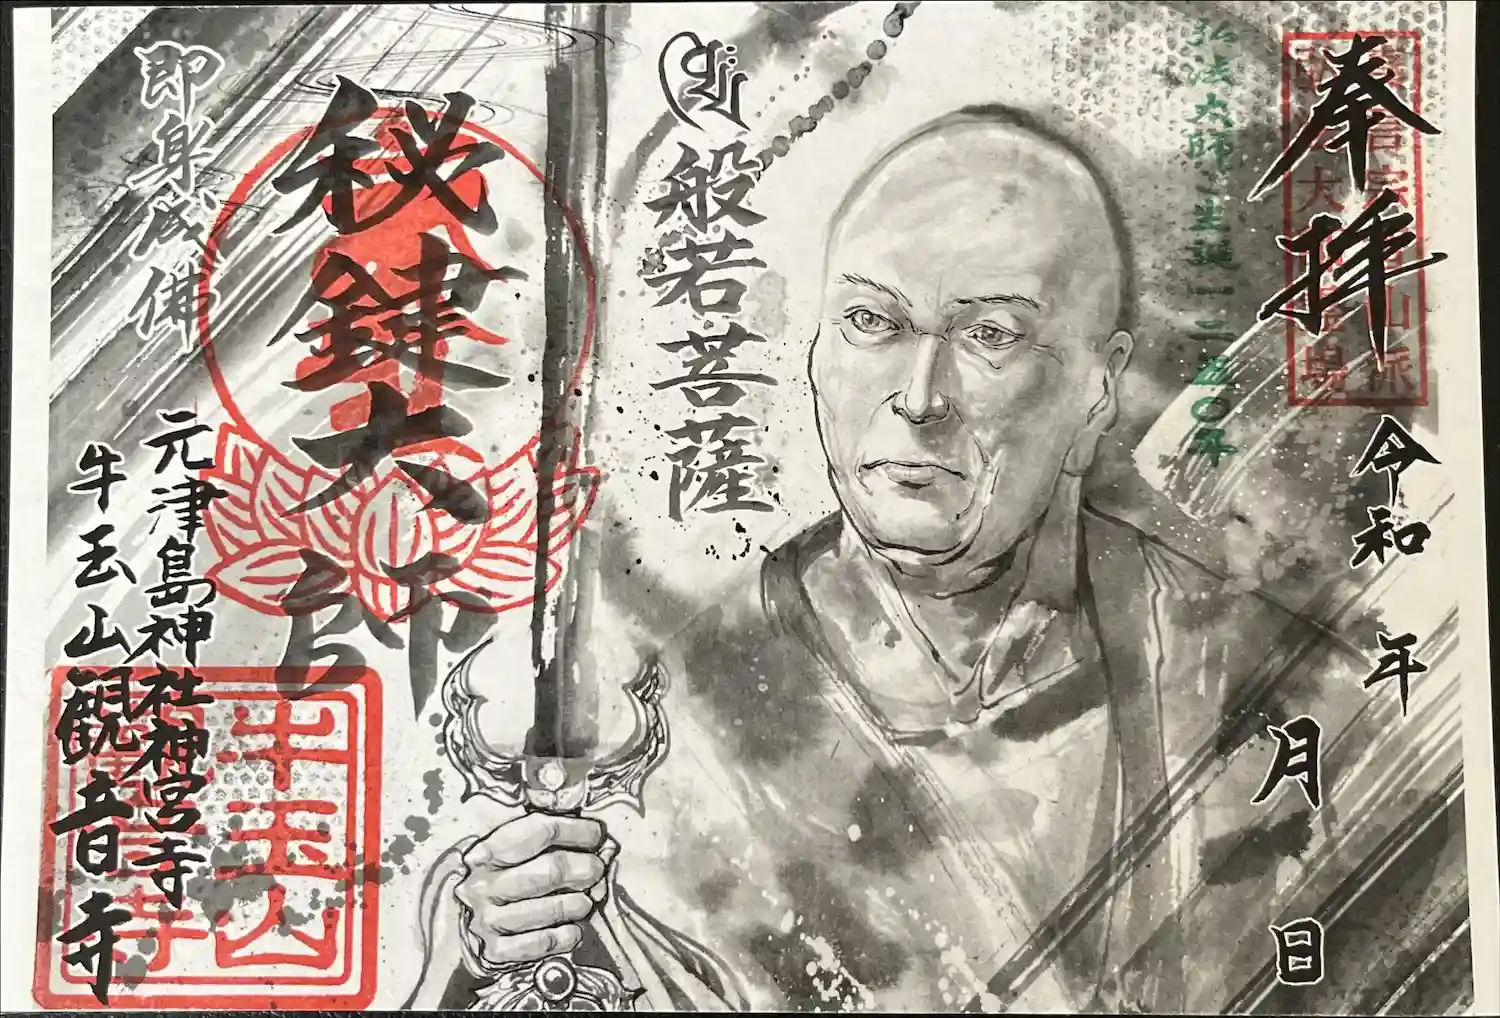 奉拝
令和 年 月 日
弘法大師ご生誕一二五〇年
般若菩薩
秘鍵大師
即身成佛
元津島神社神宮寺
牛玉山観音寺
牛玉山